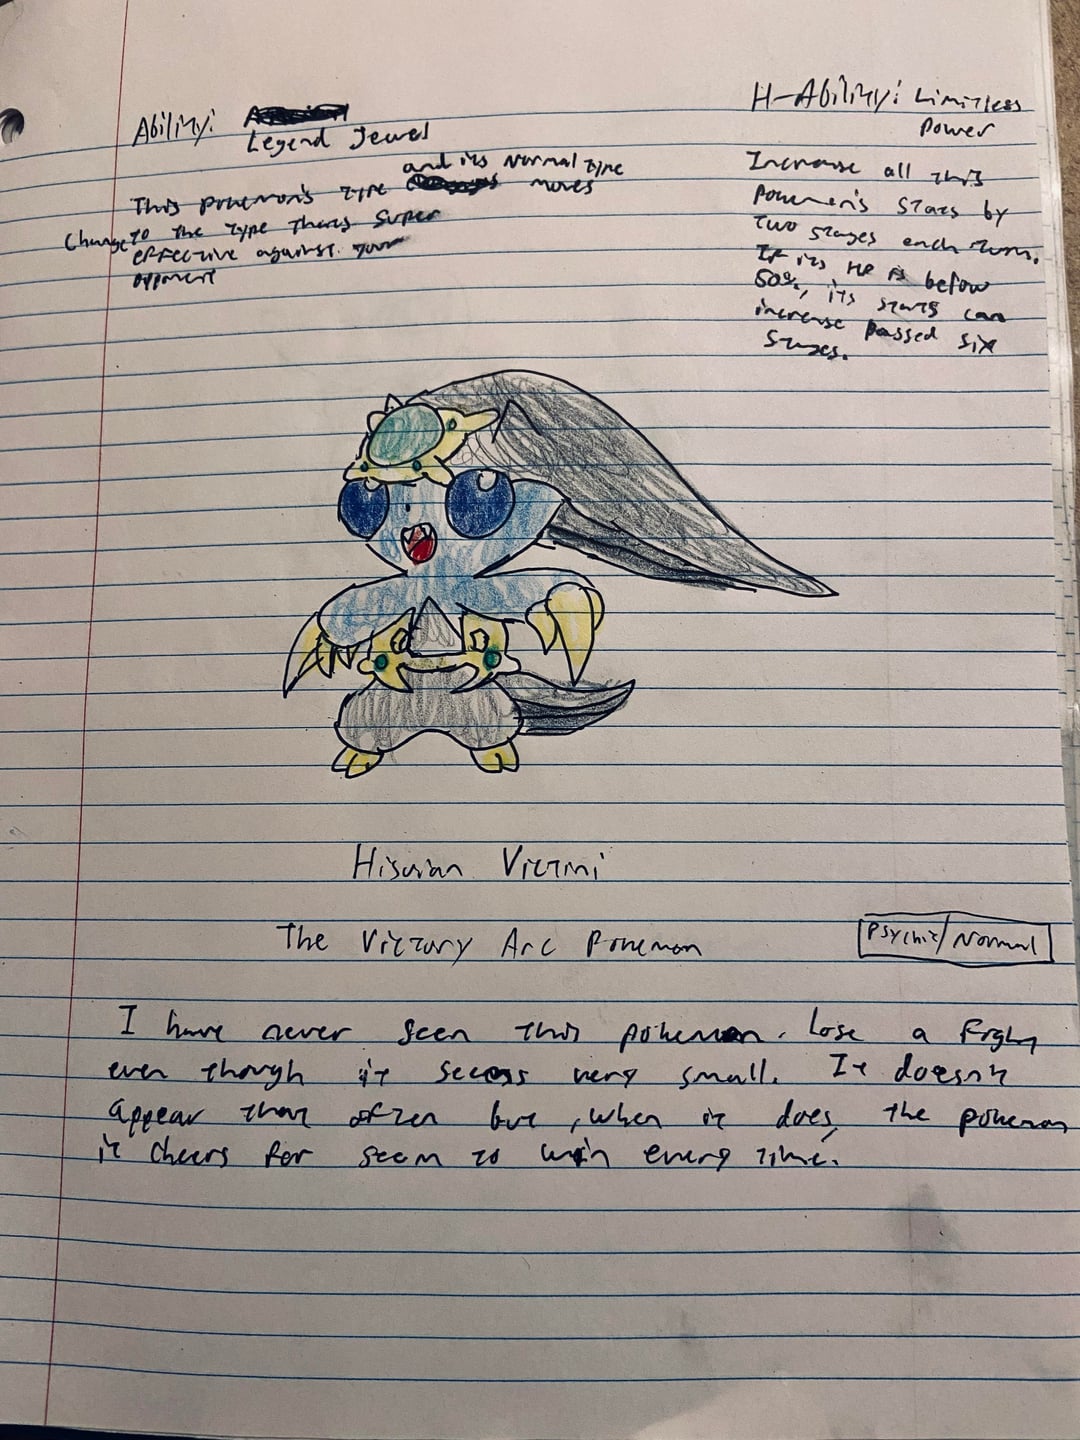 Ability:
Legend Jewel
This pokemon's type and its Normal type moves
change to the type thats super
effective against your
opponent
H-Ability: Limitless
Power
Increase all this
Pokemon's stats by
two stages each turn.
If its HP is below
50%, its stats can
increase passed six
stages.
Hisuian Victini
The Victory Arc Pokemon
Psychic/Normal
I have never seen this pokemon. lose a fight
even though it seems very small. It doesn't
appear that often but, when it does, the pokemon
it cheers for seem to win every time.